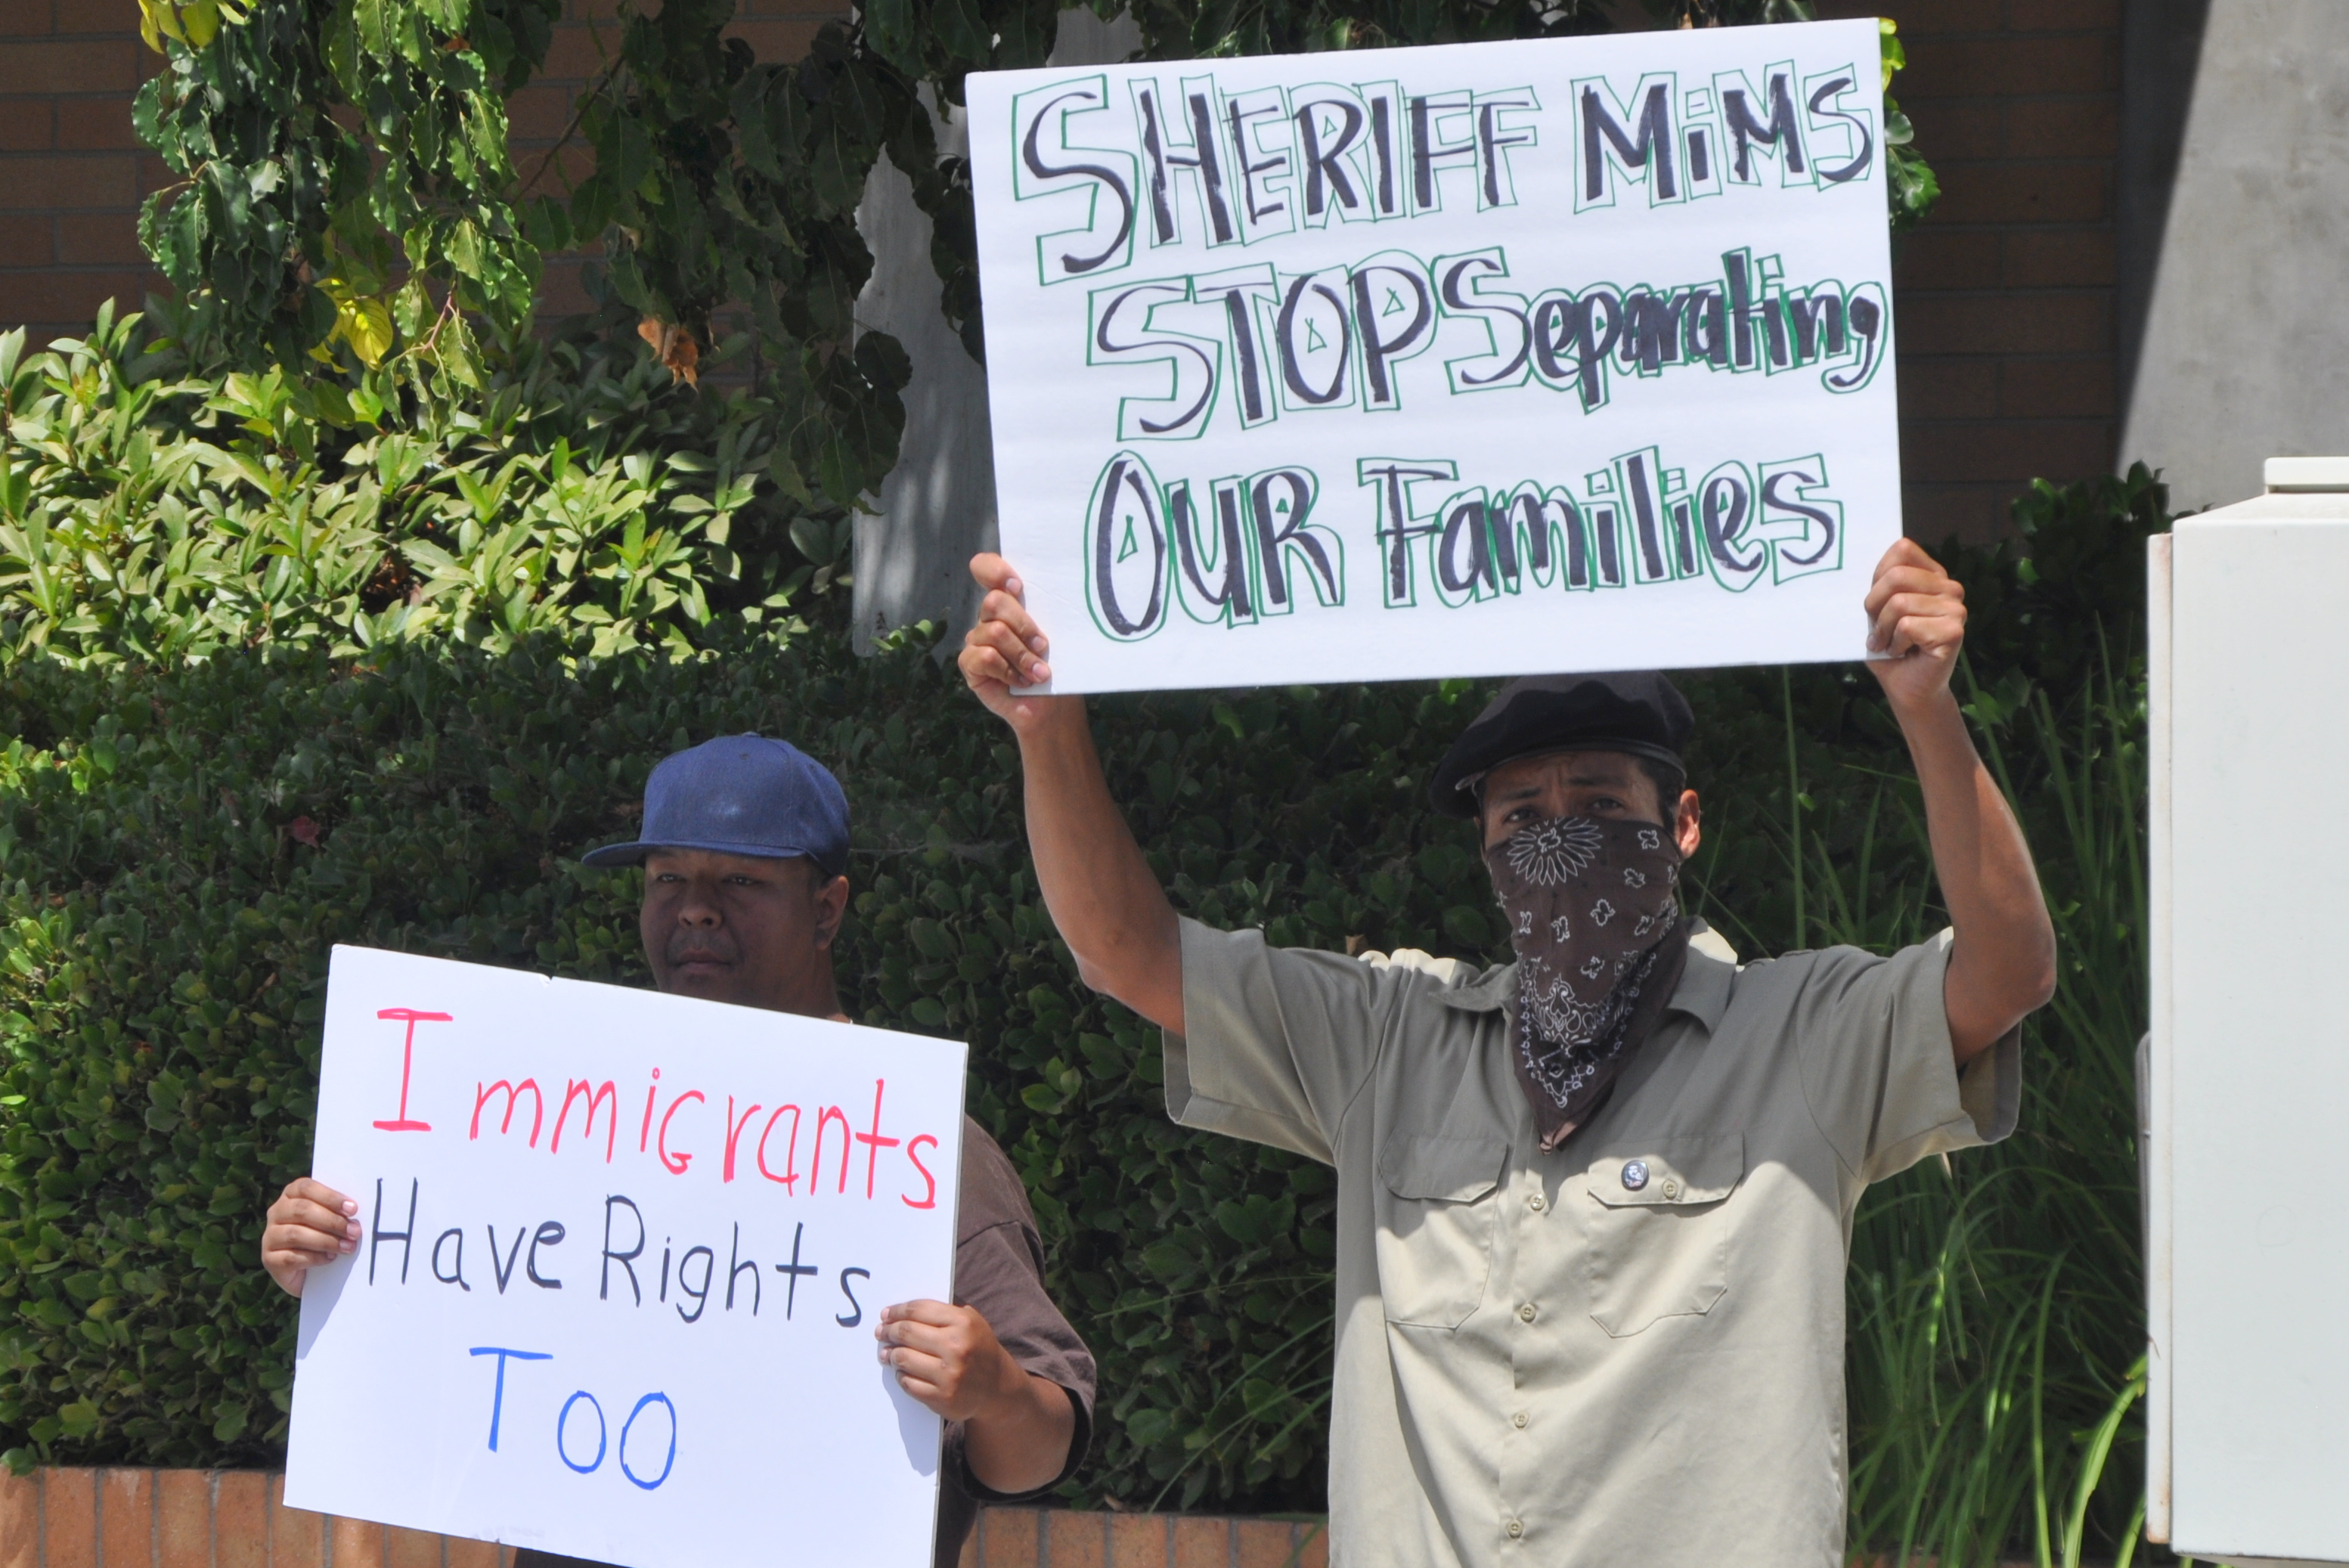 SHERIFF MiMS
STOP Separating
OUR Families
Immigrants
Have Rights
Too